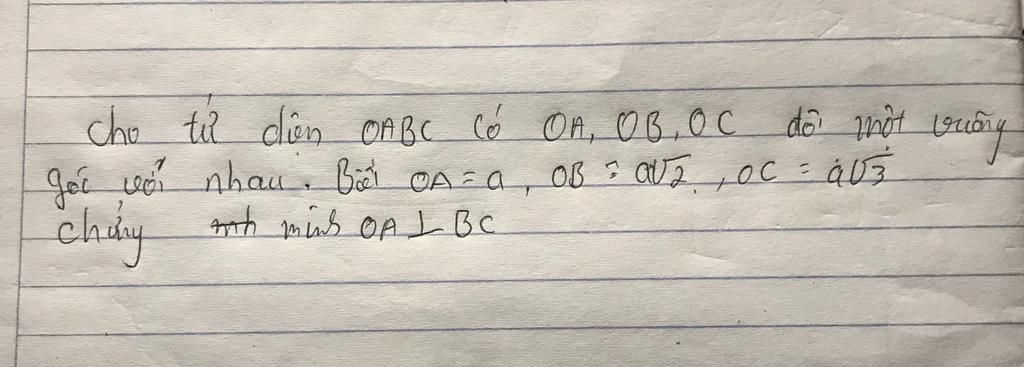 Cho tứ diện OABC có OA, OB, OC đôi một vuông
góc với nhau. Biết OA = a, OB = a√2, OC = a√3
chứng minh OA ⊥ BC